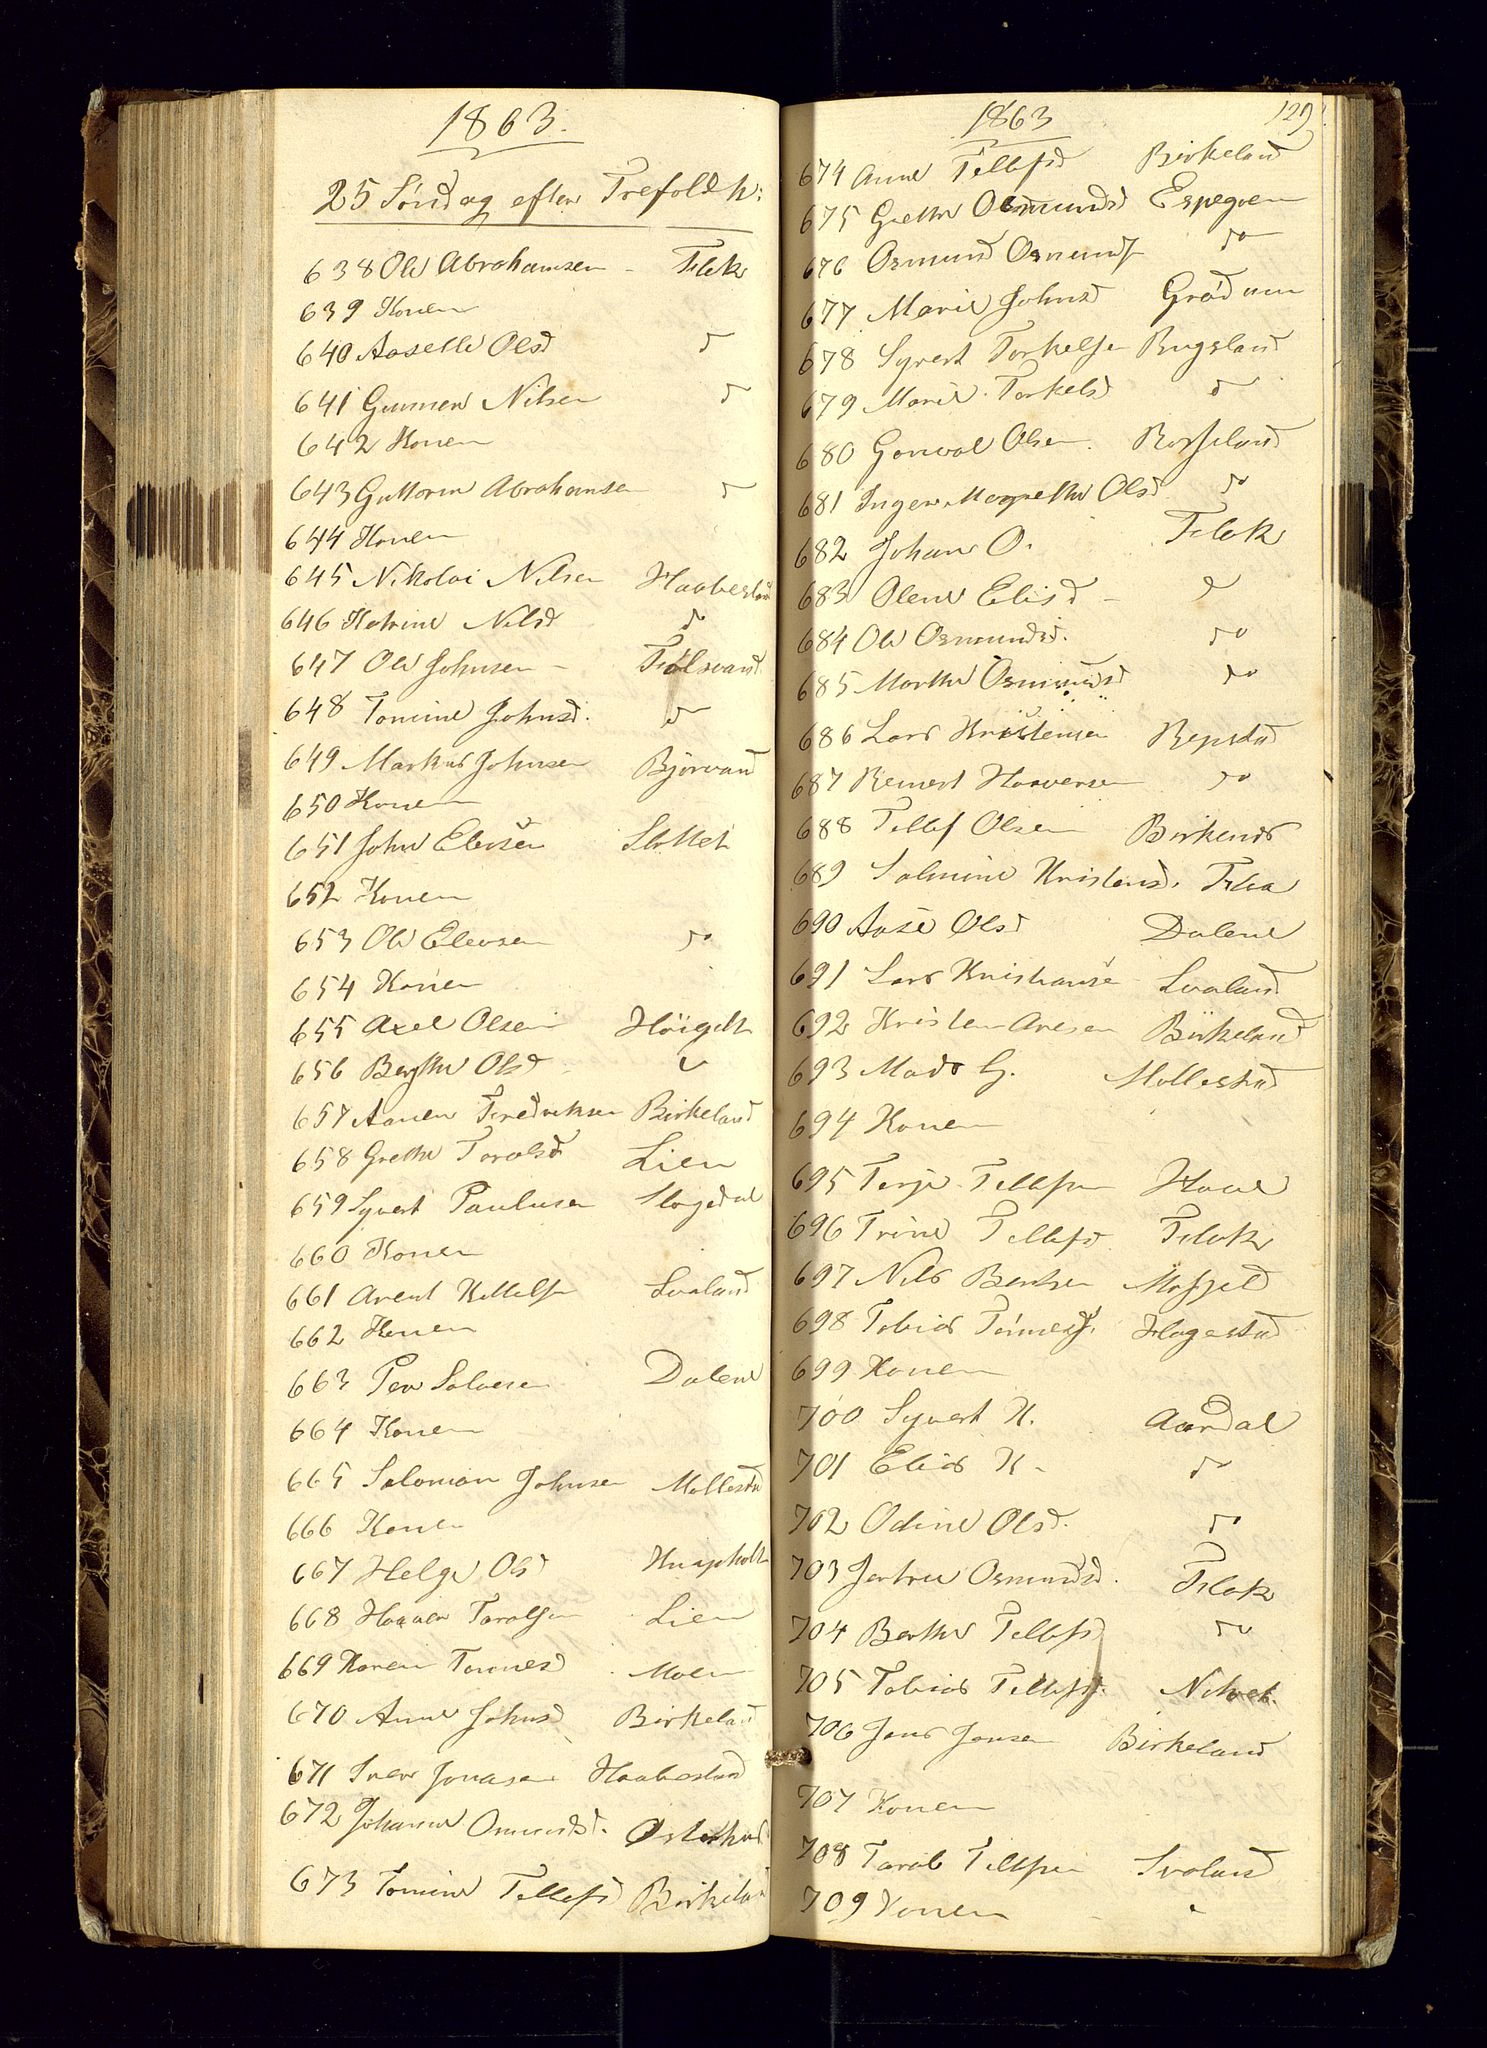 1863.
25 Søndag efter Trefoldh:
638 Ole Abrahamsen - Flak
639 Konen
640 Aaselle Olsd do
641 Gunner Nilsen do
642 Konen
643 Guttorm Abrahamsen do
644 Konen
645 Nikolai Nilsen Haabesland
646 Katrine Nilsd do
647 Ole Johnsen - Tølsvand
648 Tomine Johnsd. do
649 Markus Johnsen Bjorvand
650 Konen
651 John Elevsen Slottet
652 Konen
653 Ole Elevsen do
654 Konen
655 Axel Olsen Høigilt
656 Berthe Olsd
657 Aanen Fredriksen Birkeland
658 Grethe Taralsd Lien
659 Syvert Paulusen Slogedal
660 Konen
661 Arent Kittelsen Svaland
662 Konen
663 Per Salvesen Dalene
664 Konen
665 Salomon Johnsen Mollestad
666 Konen
667 Helge Olsd Knapholt
668 Haaver Taralsen Lien
669 Karen Tomesd Moen
670 Anne Johnsd Birkeland
671 Sven Jonasen Haabesland
672 Johanne Omundsd. Østerhus
673 Tomine Tellefsd Birkeland
1863 129
674 Anne Tellefsd Birkeland
675 Grethe Osmundsd Espegren
676 Osmund Osmunds do
677 Marie Johnsd Grødum
678 Syvert Torkelsen Bugsland
679 Marie Torkelsd do
680 Gonval Olsen. Rosseland
681 Inger Magrethe Olsd do
682 Johan O. Flak
683 Olene Elisd - do
684 Ole Osmundsd. do
685 Marthe Osmundsd do
686 Lars Kristensen Repstad
687 Reinert Haaversen do
688 Tellef Olsen Birkenes
689 Salmine Kristensd. Flaa
690 Aase Olsd Dalene
691 Lars Kristianse Svaland
692 Kristen Aresen Birkeland
693 Mads G. Mollestad
694 Konen
695 Terje Tellefsen Haave
696 Trine Tellefsd Flak
697 Nils Bentsen Mosfjeld
698 Tobias Tønnesf. Hagestad
699 Konen
700 Syvert K. Aardal
701 Elias K - do
702 Odine Olsd. do
703 Jertrue Osmundsd. Flak
704 Berthe Tellefsd do
705 Tobias Tellefs.
706 Jens Jensen Birkeland
707 Konen
708 Taral Tellefsen Svaland
709 Konen - "